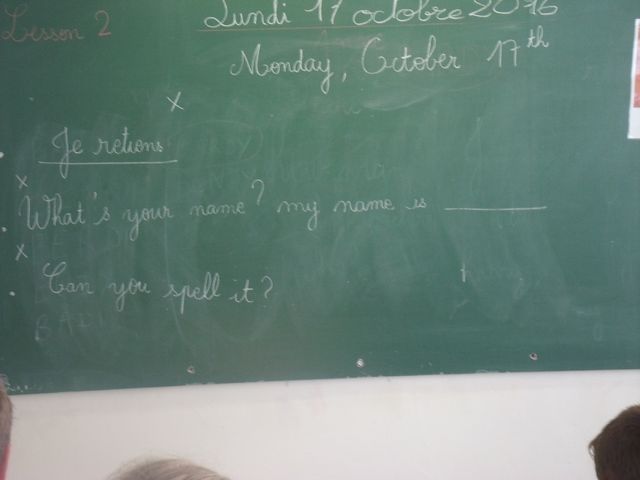 Lesson 2
Lundi 17 octobre 2016
Monday, October 17th
Je retiens
What's your name? my name is
Can you spell it?